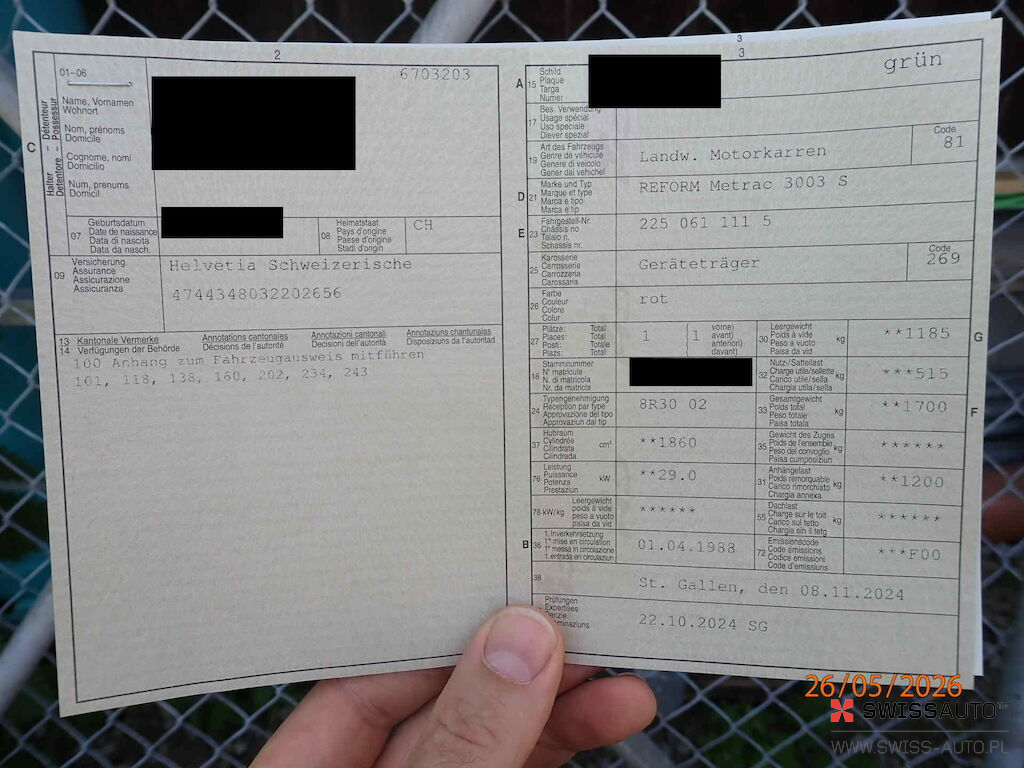 2
01-06
6703203
C
Halter - Détenteur
Detentore - Possessur
Name, Vornamen
Wohnort
Nom, prénoms
Domicile
Cognome, nomi
Domicilio
Num, prenums
Domicil
07
Geburtsdatum
Date de naissance
Data di nascita
Data da nasch.
08
Heimatstaat
Pays d'origine
Paese d'origine
Stadi d'origin
CH
09
Versicherung
Assurance
Assicurazione
Assicuranza
Helvetia Schweizerische
4744348032202656
13 Kantonale Vermerke Annotations cantonales Annotazioni cantonali Annotaziuns chantunalas
14 Verfügungen der Behörde Décisions de l'autorité Decisioni dell'autorità Disposiziuns da l'autoritad
100 Anhang zum Fahrzeugausweis mitführen
101, 118, 138, 160, 202, 234, 243
3
3
grün
A 15
Schild
Plaque
Targa
Numer
17
Bes. Verwendung
Usage spécial
Uso speciale
Diever spezial
19
Art des Fahrzeugs
Genre de véhicule
Genere di veicolo
Gener dal vehichel
Landw. Motorkarren
Code
81
D 21
Marke und Typ
Marque et type
Marca e tipo
Marca e tip
REFORM Metrac 3003 S
E 23
Fahrgestell-Nr.
Châssis no
Telaio n.
Schassis nr.
225 061 111 5
25
Karosserie
Carrosserie
Carrozzeria
Carossaria
Geräteträger
Code
269
26
Farbe
Couleur
Colore
Colur
rot
27
Plätze: Total
Places: Total
Posti: Totale
Plazs: Total
1
(1
vorne)
avant)
anteriori)
davant)
30
Leergewicht
Poids à vide
Peso a vuoto
Paisa da vid
kg
**1185
G
18
Stammnummer
N° matricule
N. di matricola
Nr. da matricla
32
Nutz-/Sattellast
Charge utile/sellette
Carico utile/sella
Chargia utila/sella
kg
***515
24
Typengenehmigung
Réception par type
Approvazione del tipo
Approvaziun dal tip
8R30 02
33
Gesamtgewicht
Poids total
Peso totale
Paisa totala
kg
**1700
F
37
Hubraum
Cylindrée
Cilindrata
Cilindrada
cm³
**1860
35
Gewicht des Zuges
Poids de l'ensemble
Peso del convoglio
Paisa cumposiziun
kg
******
76
Leistung
Puissance
Potenza
Prestaziun
kW
**29.0
31
Anhängelast
Poids remorquable
Carico rimorchiato
Chargia annexa
kg
**1200
78 kW/kg
Leergewicht
poids à vide
peso a vuoto
paisa da vid
******
55
Dachlast
Charge sur le toit
Carico sul tetto
Chargia sin il tetg
kg
******
B 36
1. Inverkehrsetzung
1re mise en circulation
1a messa in circolazione
1. entrada en circulaziun
01.04.1988
72
Emissionscode
Code émissions
Codice emissioni
Code d'emissiuns
***F00
38
St. Gallen, den 08.11.2024
Prüfungen
Expertises
22.10.2024 SG
26/05/2026
SWISSAUTO
WWW.SWISS-AUTO.PL